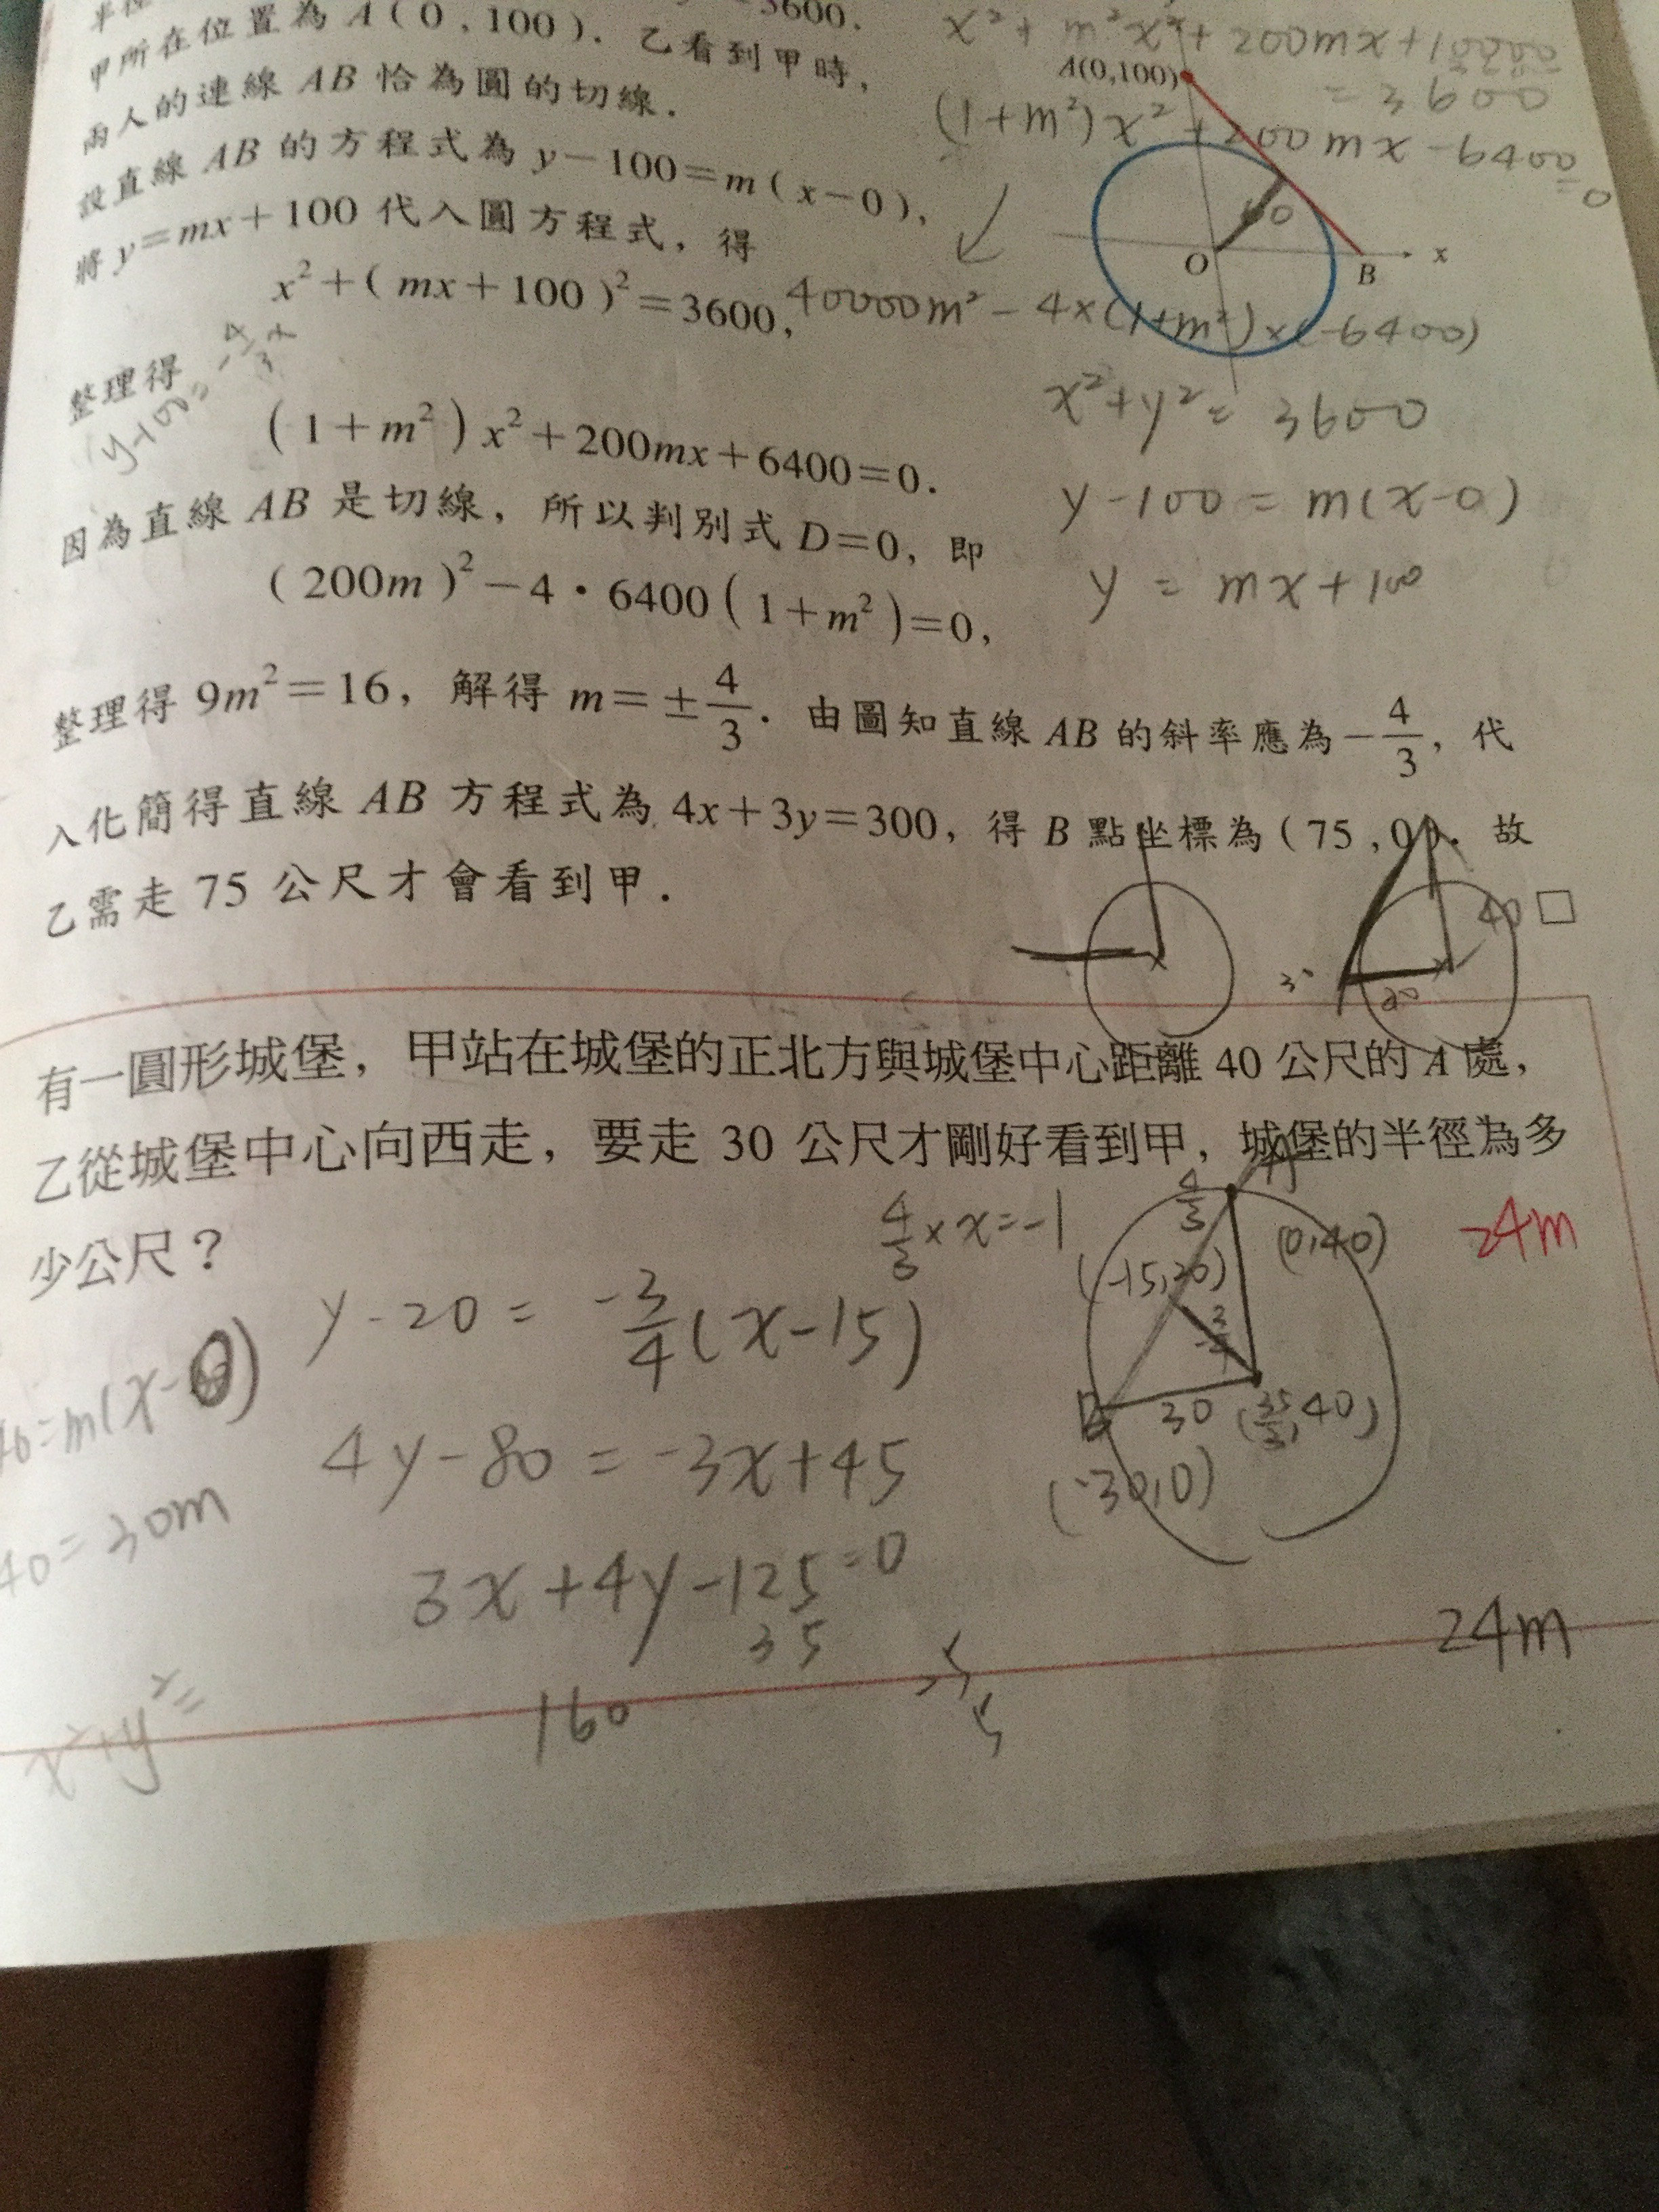 3600.
甲所在位置為 A(0,100). 乙看到甲時,
兩人的連線 AB 恰為圓的切線.
設直線 AB 的方程式為 y-100=m(x-0),
將 y=mx+100 代入圓方程式, 得
x²+(mx+100)²=3600,
整理得
(1+m²)x²+200mx+6400=0.
因為直線 AB 是切線, 所以判別式 D=0, 即
(200m)²-4·6400(1+m²)=0,
整理得 9m²=16, 解得 m=±4/3. 由圖知直線 AB 的斜率應為-4/3, 代
入化簡得直線 AB 方程式為 4x+3y=300, 得 B 點坐標為(75,0). 故
乙需走 75 公尺才會看到甲.
x²+m²x²+200mx+10000
=3600
A(0,100)
(1+m²)x²+200mx-6400
=0
60
O
B
x
40000m²-4×(1+m²)×(-6400)
x²+y²=3600
y-100=m(x-0)
y=mx+100
40
30
20
有一圓形城堡, 甲站在城堡的正北方與城堡中心距離 40 公尺的 A 處,
乙從城堡中心向西走, 要走 30 公尺才剛好看到甲, 城堡的半徑為多
少公尺?
4/3×x=-1
4/3
A
(0,40)
24m
(-15,20)
y-20=-3/4(x-15)
30
(-30,0)
4y-80=-3x+45
40=30m
3x+4y-125=0
35
160
24m
x²+y²=